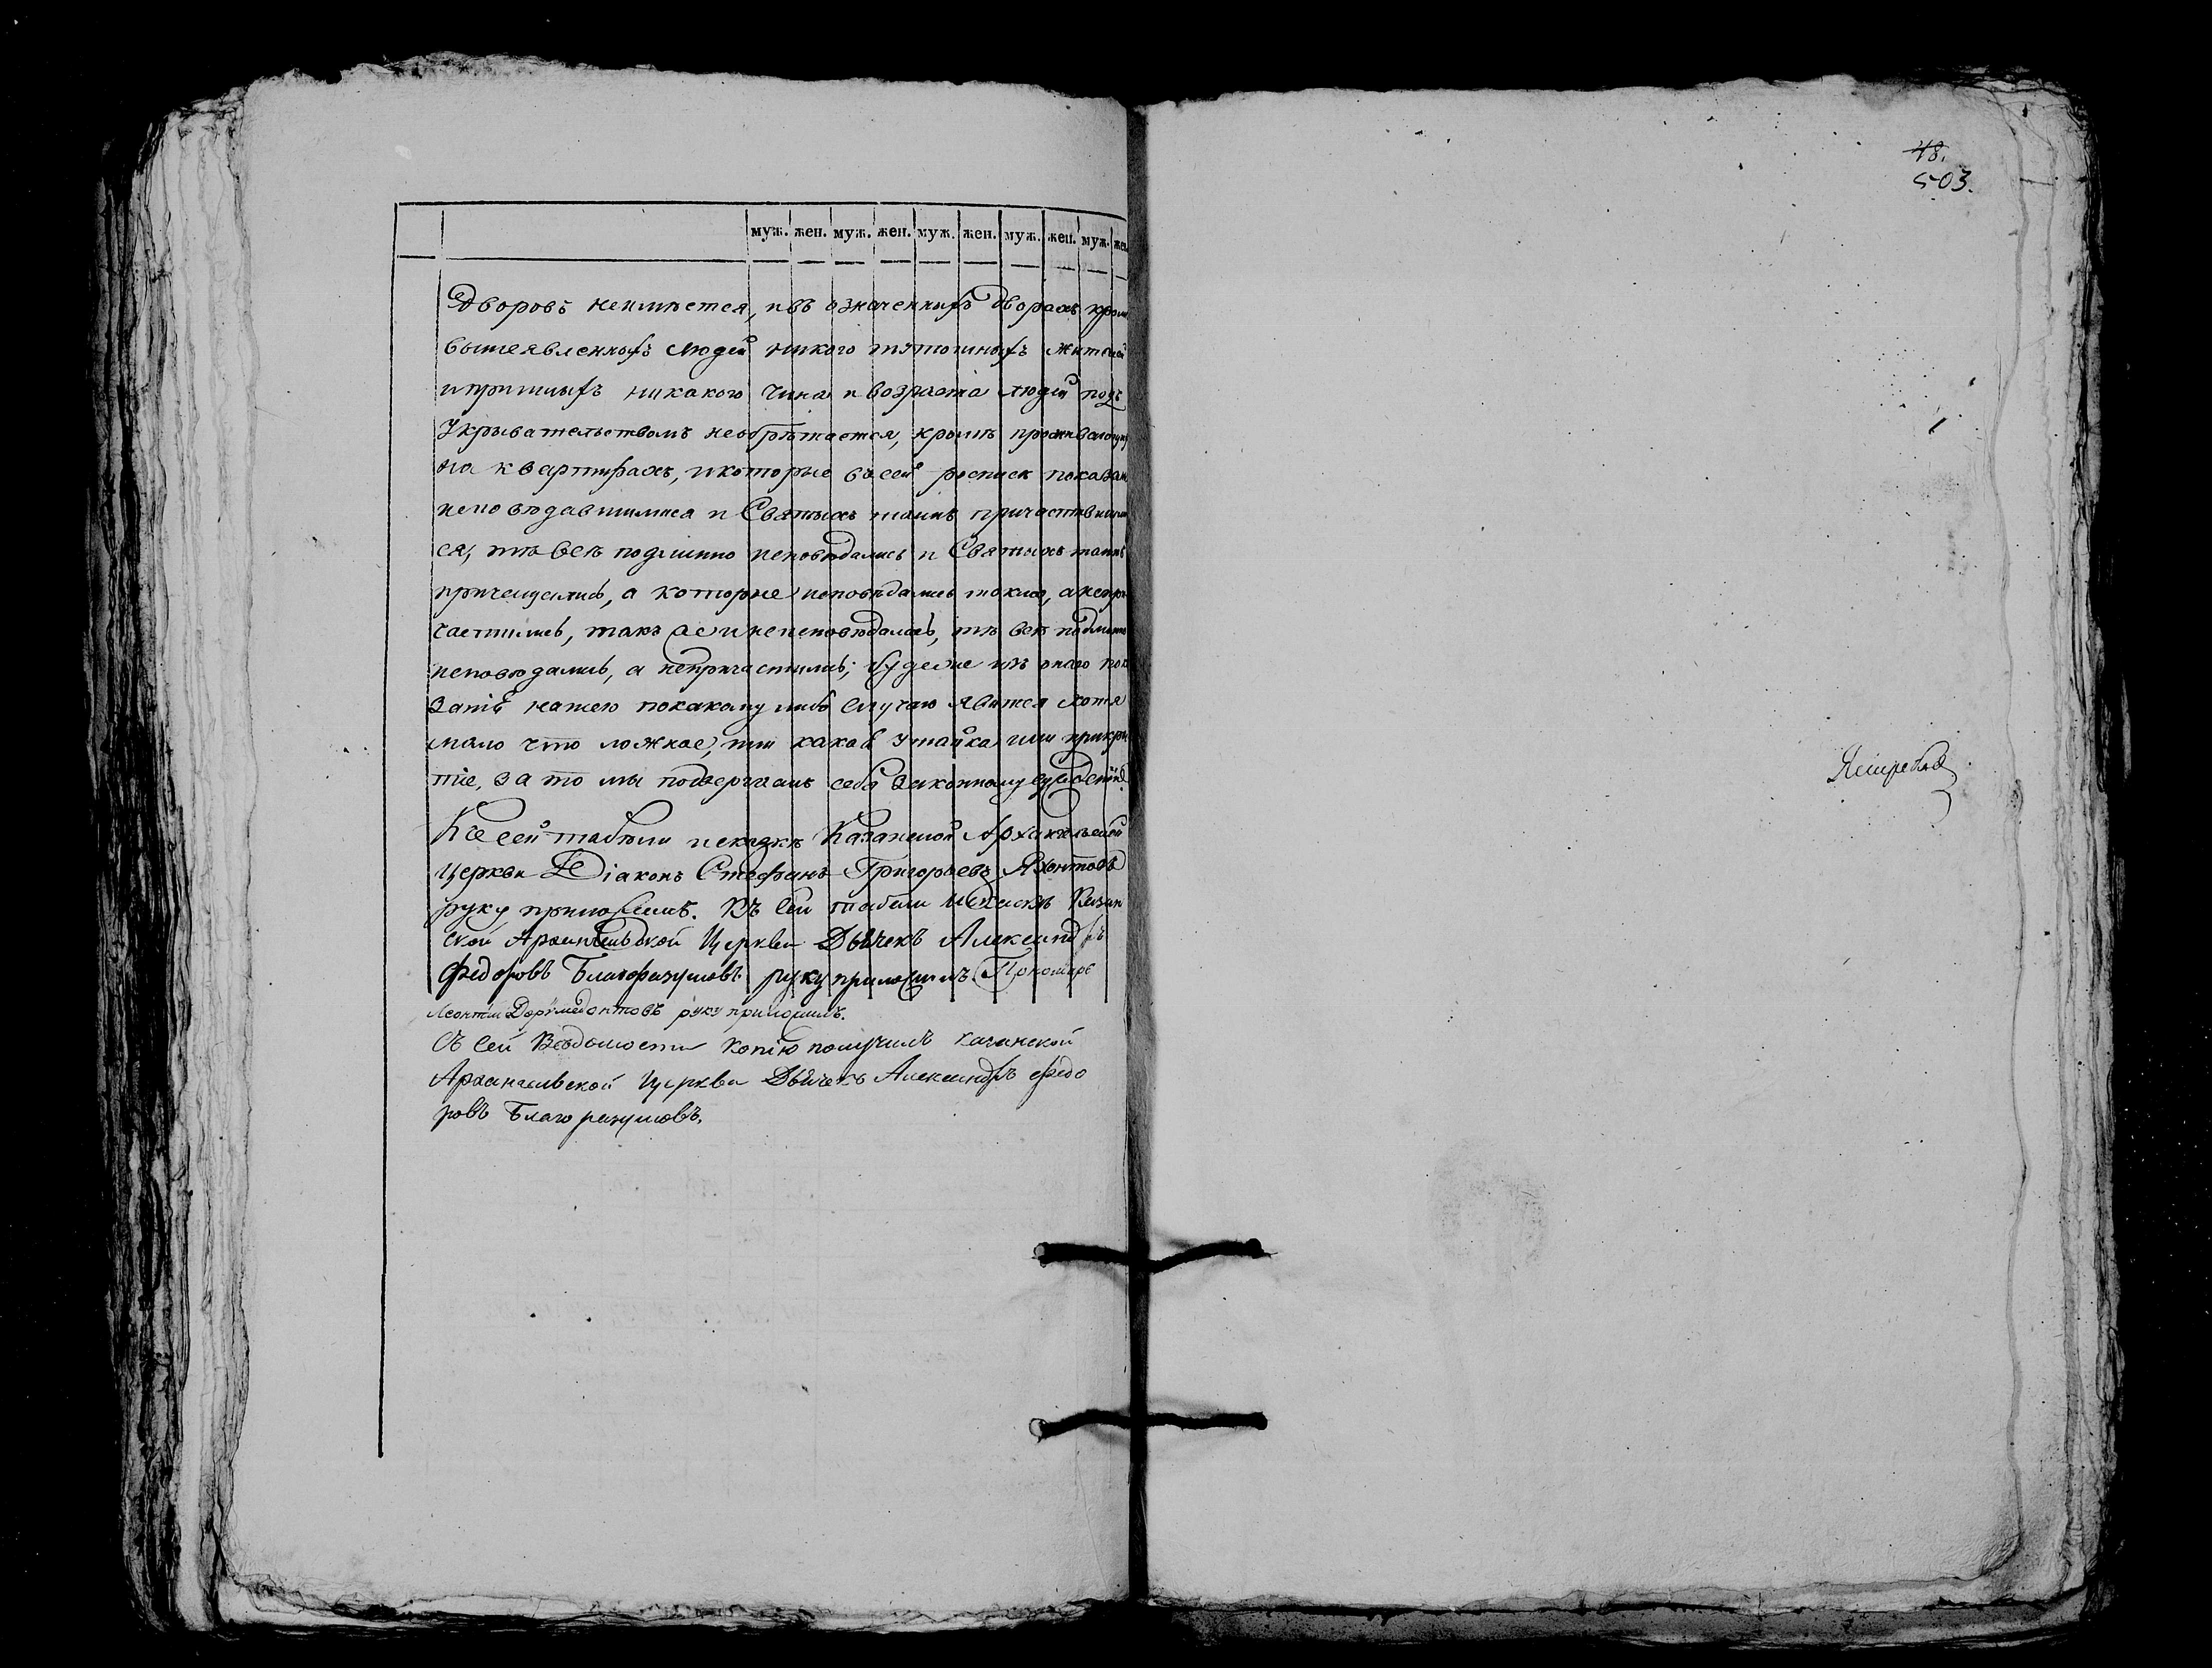 48.
503.
муж. жен. муж. жен. муж. жен. муж. жен. муж. жен.
Дворовъ неимѣется, ивъ означенныхъ дворахъ кромѣ
вышеявленныхъ людей никого тутошныхъ жителей
ипришлыхъ никакого чина и возраста людей подъ
укрывательствомъ необрѣтается, кромѣ проживающихъ
на квартирахъ, икоторые въсей росписи показаны
исповѣдавшимися и Святыхъ таинъ причаствившими
ся, тѣ всѣ подлинно исповѣдались и Святыхъ таинъ
причещались, а которые исповѣдались токмо, анепри
частились, такъ же и неисповѣдались, тѣ всѣ подлинно
исповѣдались, а непричастились; будеже изъ онаго пока
занія нашего покакому либо случаю явится хотя
мало что ложное, или какая утайка или прикры
тіе, за то мы подвергаемъ себя законному сужденію.
Ксей табели искаскѣ Казанской Архангельской
Церкви Діаконъ Стефанъ Григорьевъ Яхонтовъ
руку приложилъ. Къ сей табели искаскѣ Казан
ской Архангельской Церкви Дьячекъ Александръ
Федоровъ Благоразумовъ руку приложилъ. Пономарь
Леонтій Доримедонтовъ руку приложилъ.
Съ сей Вѣдомости копію получилъ казанской
Архангельской Церкви Дьячекъ Александръ Федо
ровъ Благоразумовъ.